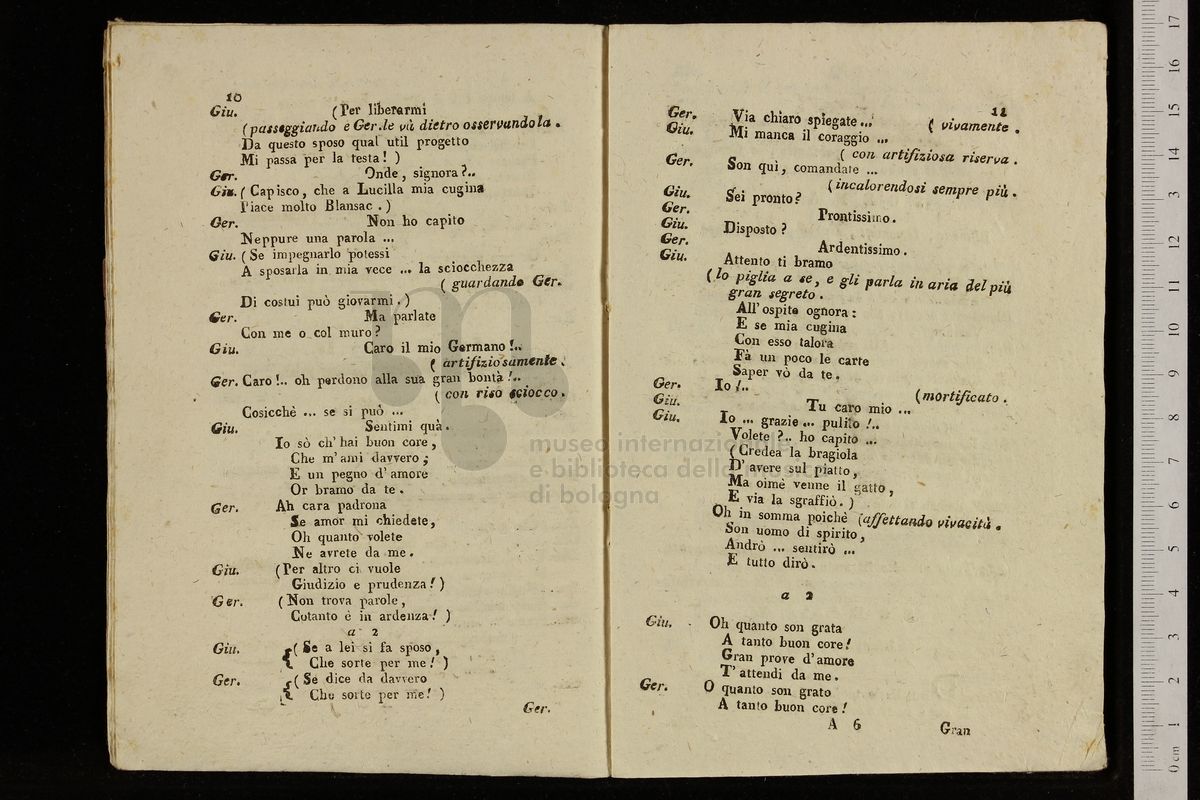 10
Giu. (Per liberarmi
(passeggiando e Ger. le và dietro osservandola.
Da questo sposo qual' util progetto
Mi passa per la testa! )
Ger. Onde, signora?..
Giu. ( Capisco, che a Lucilla mia cugina
Piace molto Blansac. )
Ger. Non ho capito
Neppure una parola ...
Giu. ( Se impegnarlo potessi
A sposarla in mia vece ... la sciocchezza
( guardando Ger.
Di costui può giovarmi. )
Ger. Ma parlate
Con me o col muro?
Giu. Caro il mio Germano!..
( artifiziosamente.
Ger. Caro!.. oh perdono alla sua gran bontà!..
( con riso sciocco.
Cosicchè ... se si può ...
Giu. Sentimi quà.
Io sò ch' hai buon core,
Che m' ami davvero;
E un pegno d' amore
Or bramo da te.
Ger. Ah cara padrona
Se amor mi chiedete,
Oh quanto volete
Ne avrete da me.
Giu. (Per altro ci vuole
Giudizio e prudenza! )
Ger. ( Non trova parole,
Cotanto è in ardenza! )
a 2
Giu. ( Se a lei si fa sposo,
Che sorte per me! )
Ger. ( Se dice da davvero
Che sorte per me! )
Ger.
11
Ger. Via chiaro spiegate ... ( vivamente.
Giu. Mi manca il coraggio ...
( con artifiziosa riserva.
Ger. Son qui, comandate ...
( incalorendosi sempre più.
Giu. Sei pronto?
Ger. Prontissimo.
Giu. Disposto?
Ger. Ardentissimo.
Giu. Attento ti bramo
( lo piglia a se, e gli parla in aria del più
gran segreto.
All' ospite ognora:
E se mia cugina
Con esso talora
Fà un poco le carte
Saper vò da te.
Ger. Io!.. (mortificato.
Giu. Tu caro mio ...
Giu. Io ... grazie ... pulito!..
Volete?.. ho capito ...
( Credea la bragiola
D' avere sul piatto,
Ma oimè venne il gatto,
E via la sgraffiò. )
Oh in somma poichè (affettando vivacità.
Son uomo di spirito,
Andrò ... sentirò ...
E tutto dirò.
a 2
Giu. Oh quanto son grata
A tanto buon core!
Gran prove d' amore
T' attendi da me.
Ger. O quanto son grato
A tanto buon core!
A 6 Gran
museo internazionale
e biblioteca della
di bologna
0 cm 1 2 3 4 5 6 7 8 9 10 11 12 13 14 15 16 17